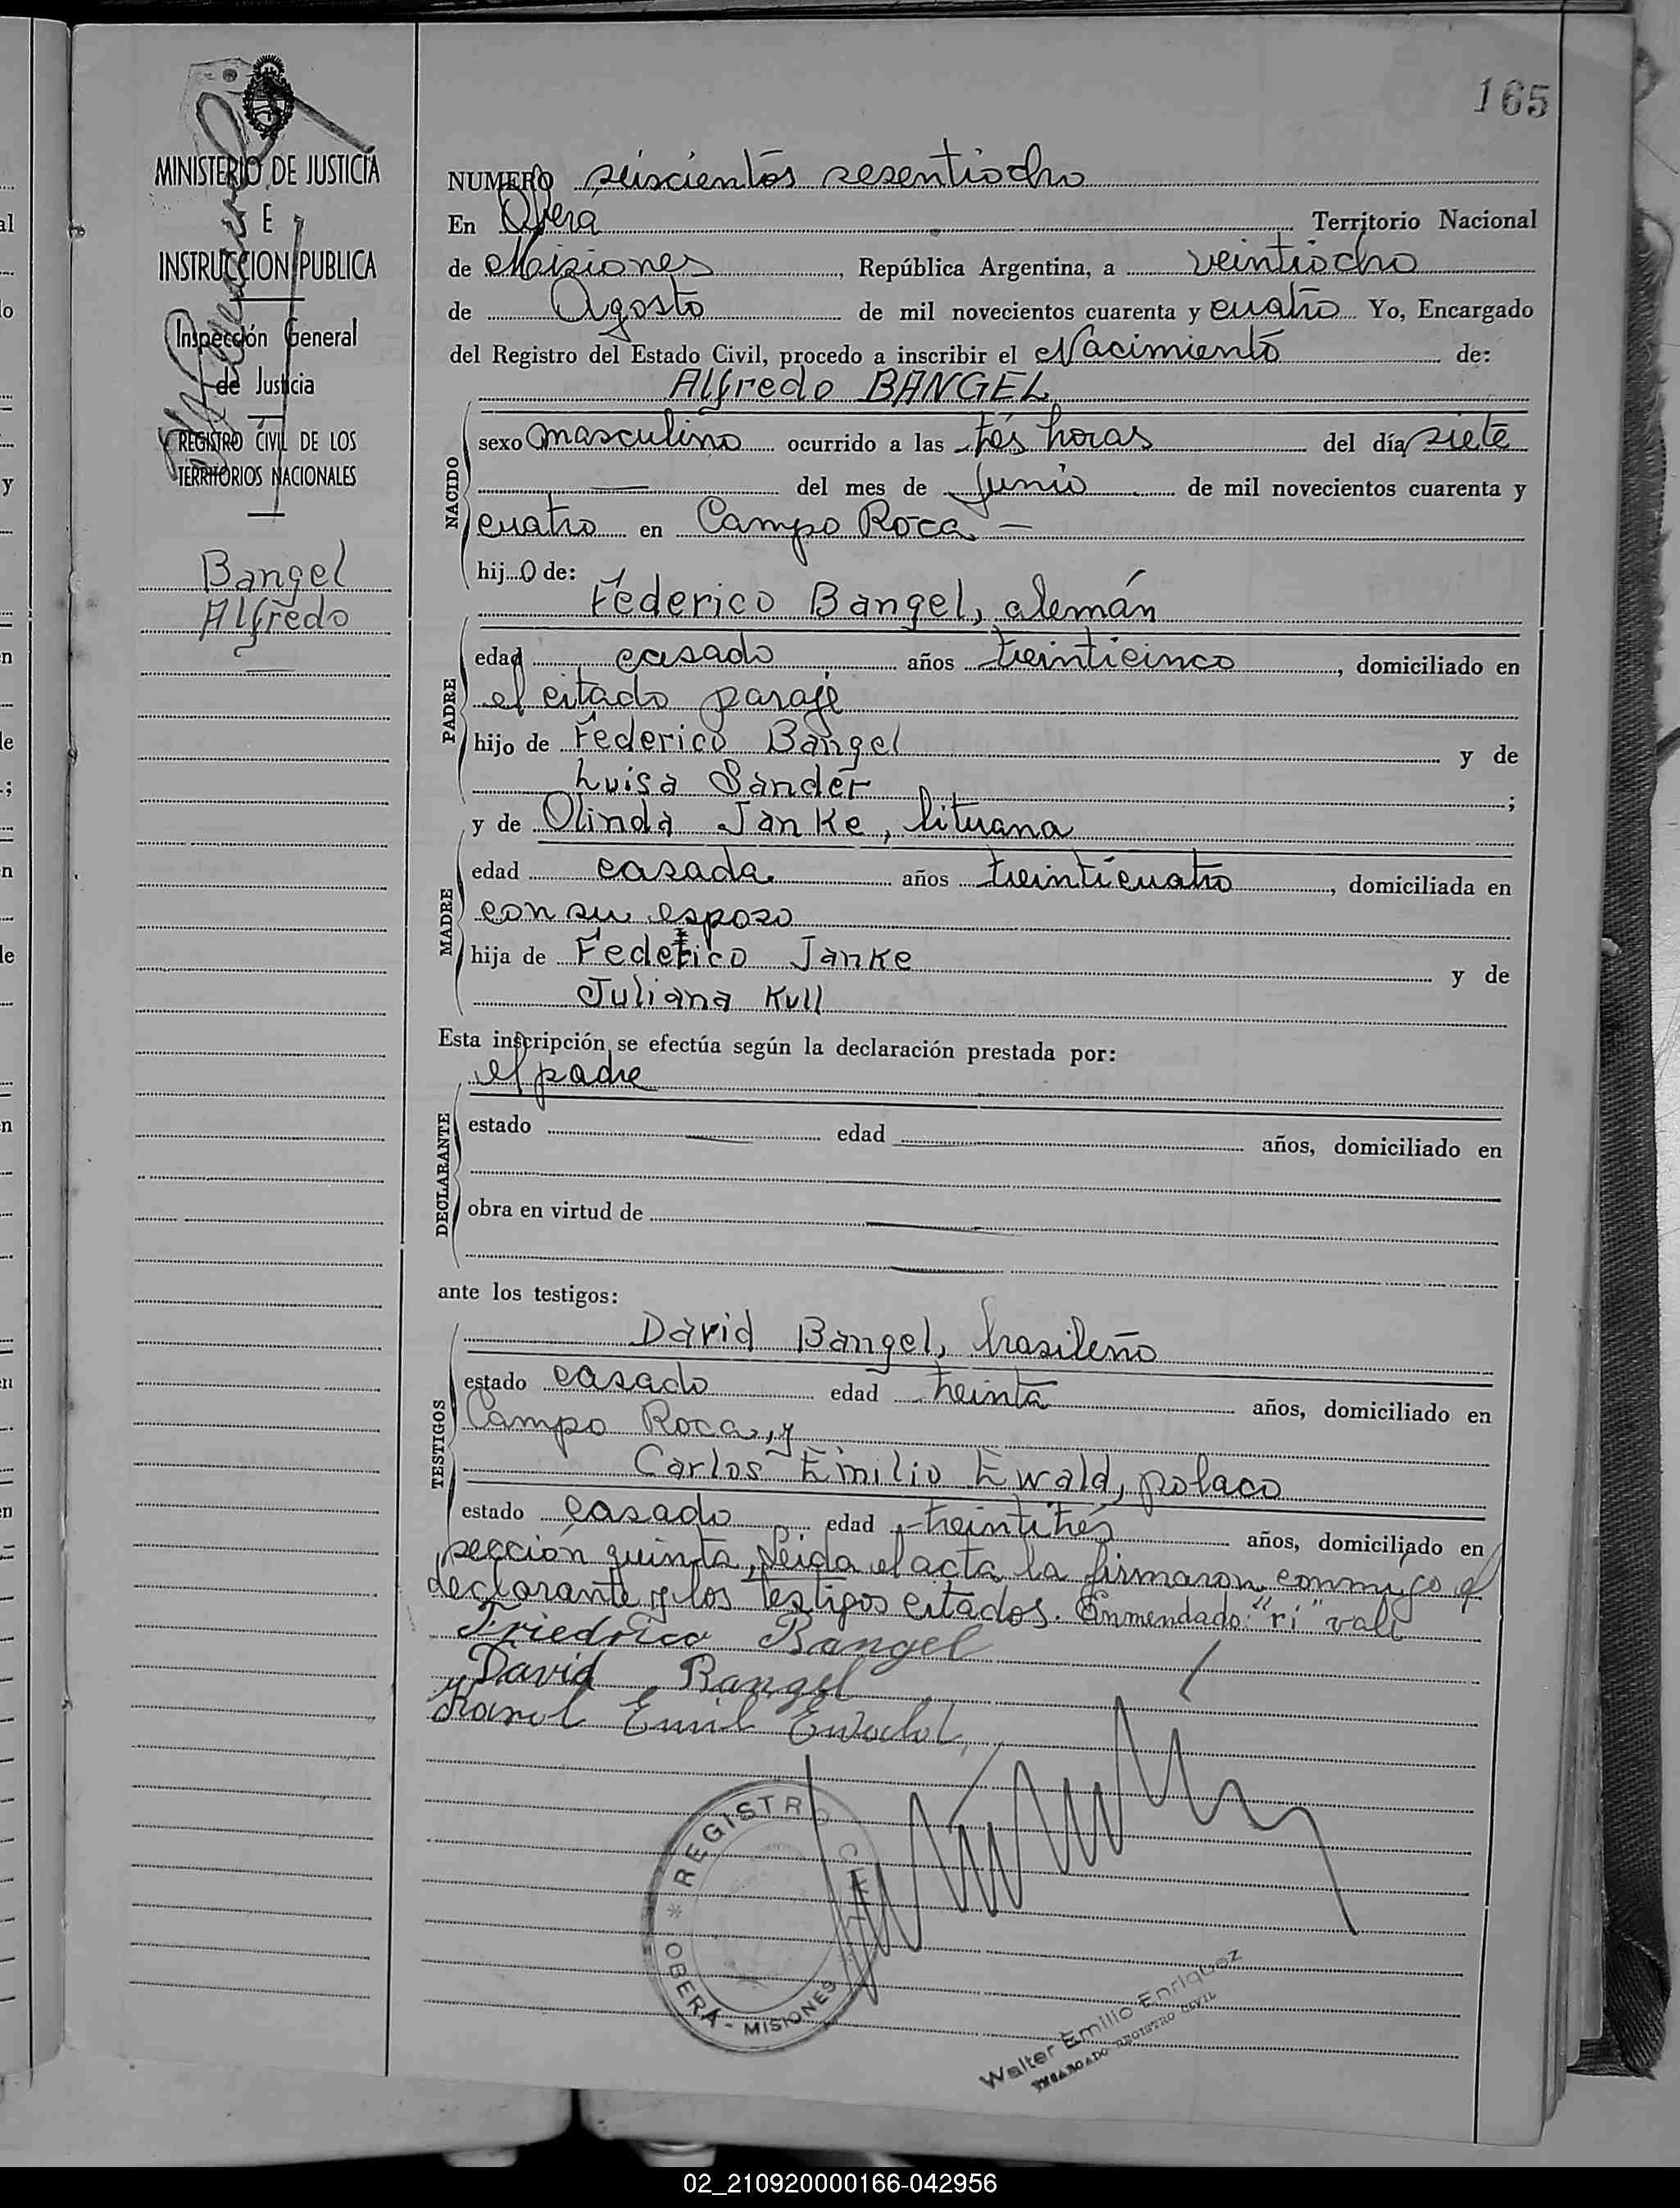 165
MINISTERIO DE JUSTICIA
E
INSTRUCCION PUBLICA
Inspección General
de Justicia
REGISTRO CIVIL DE LOS
TERRITORIOS NACIONALES
Bangel
Alfredo
NUMERO seiscientos sesentiocho
En Obera Territorio Nacional
de Misiones, República Argentina, a veintiocho
de Agosto de mil novecientos cuarenta y cuatro Yo, Encargado
del Registro del Estado Civil, procedo a inscribir el Nacimiento de:
Alfredo BANGEL
NACIDO
sexo masculino ocurrido a las tres horas del día siete
— del mes de Junio de mil novecientos cuarenta y
cuatro en Campo Roca. —
hij o de:
Federico Bangel, alemán
PADRE
edad casado años treinticinco, domiciliado en
el citado paraje
hijo de Federico Bangel y de
Luisa Sander ;
y de Olinda Janke, lituana
MADRE
edad casada años treinticuatro, domiciliada en
con su esposo
hija de Federico Janke y de
Juliana Kull
Esta inscripción se efectúa según la declaración prestada por:
el padre
DECLARANTE
estado — edad — años, domiciliado en
obra en virtud de —
ante los testigos:
David Bangel, brasileño
TESTIGOS
estado casado edad treinta años, domiciliado en
Campo Roca, y
Carlos Emilio Ewald, polaco
estado casado edad treintitrés años, domiciliado en
sección quinta, leida el acta la firmaron conmigo el
declarante y los testigos citados. Enmendado: "ri" vale
Friedrico Bangel
David Bangel
Karol Emil Ewald
REGISTRO CIVIL
* OBERÁ - MISIONES
Walter Emilio Enriquez
ENCARGADO REGISTRO CIVIL
02_210920000166-042956